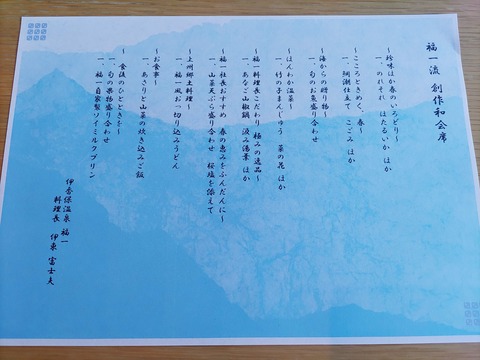 福一流 創作和会席
～珍味ほか春のいろどり～
一、のれそれ ほたるいか ほか
～こころときめく、春～
一、桐瑚仕立て、こごみ ほか
～海からの贈り物～
一、旬のお魚盛り合わせ
～ほんわか温菜～
一、竹の子まんじゅう 菜の花 ほか
～福一料理長こだわり 極みの逸品～
一、あなご山椒鍋 汲み湯葉 ほか
～福一社長おすすめ 春の恵みをふんだんに～
一、山菜天ぷら盛り合わせ 桜塩を添えて
～上州郷土料理～
一、福一風お切り込みうどん
～お食事～
一、あさりと山菜の炊き込みご飯
～食後のひとときを～
一、旬の果物盛り合わせ
一、福一自家製ソイミルクプリン
伊香保温泉 福一
料理長 伊東 富士夫